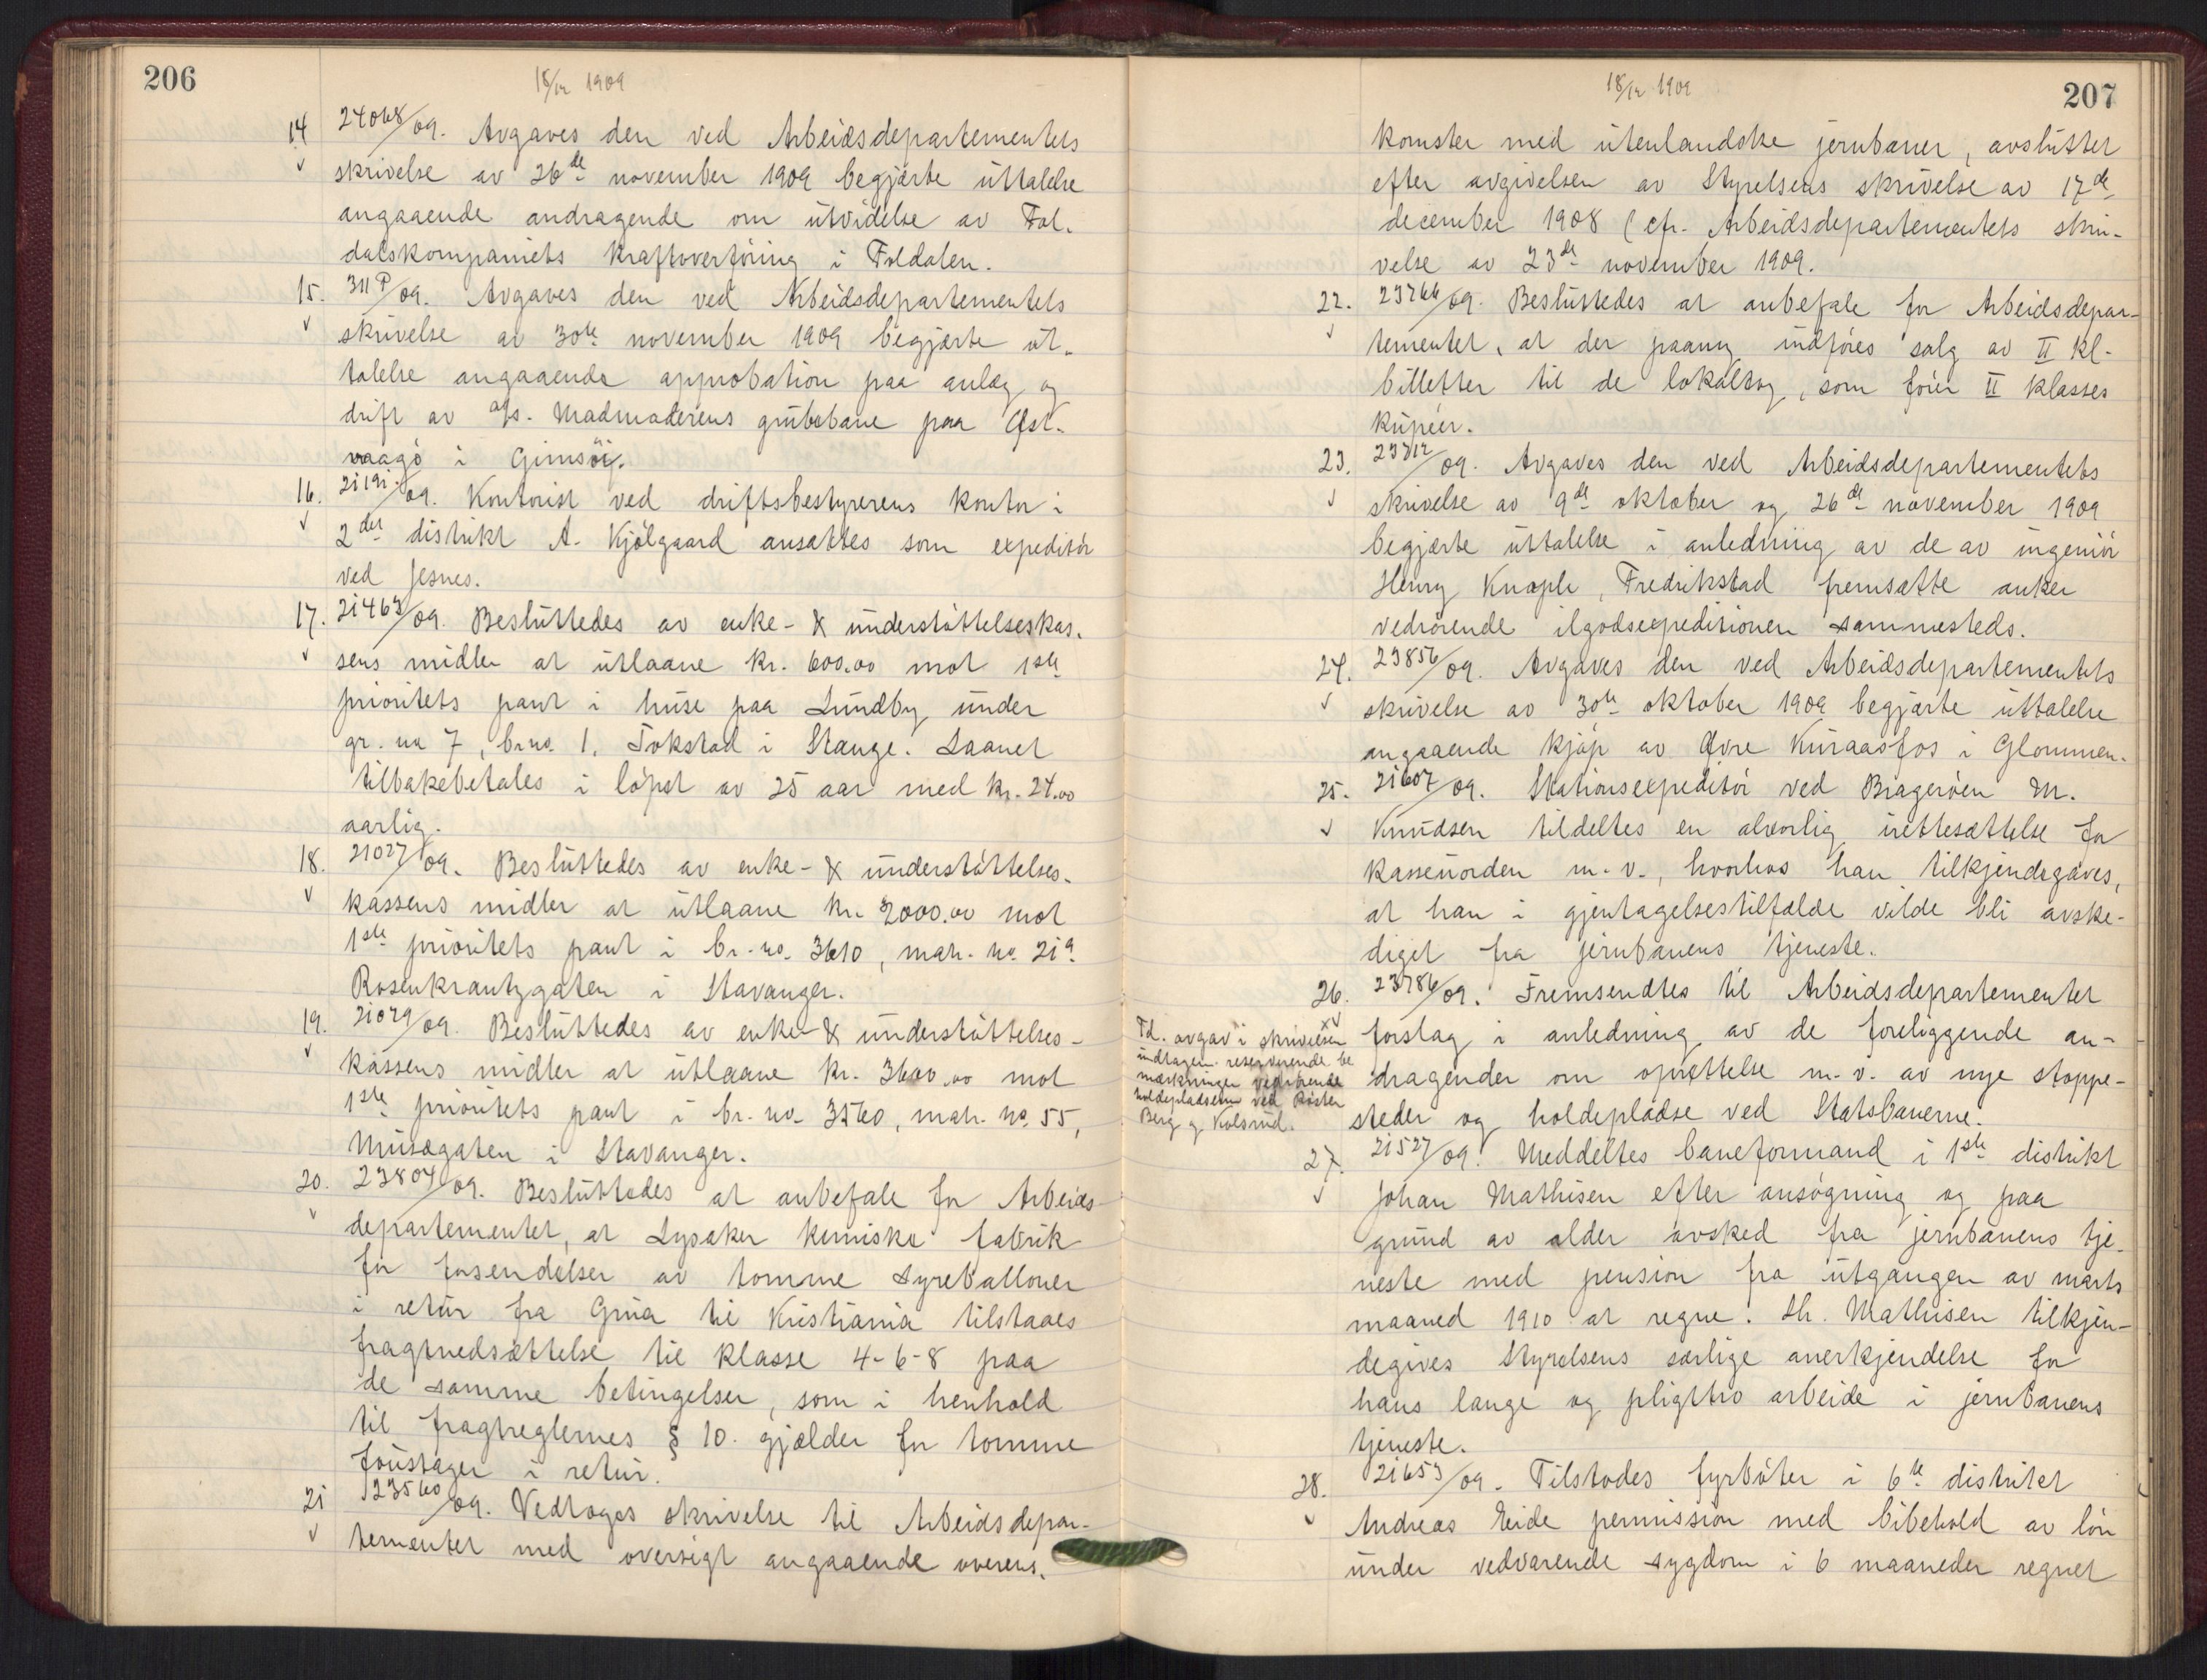 206
18/12 1909
14 24068/09. Avgaves den ved Arbeidsdepartementets
skrivelse av 26de november 1909 begjærte uttalelse
angaaende andragende om utvidelse av Fol-
dalskompaniets kraftoverføring i Foldalen.
15. 311 P/09. Avgaves den ved Arbeidsdepartementets
skrivelse av 30te november 1909 begjærte ut-
talelse angaaende approbation paa anlæg og
drift av a/s. Madmoderens grubebane paa Øst-
vaagø i Gimsøi.
16. 21191/09. Kontorist ved driftsbestyrerens kontor i
2det distrikt A. Kjølgaard ansattes som expeditør
ved Jesnes.
17. 21463/09. Besluttedes av enke- & understøttelseskas-
sens midler at utlaane kr. 600.00 mot 1ste
prioritets pant i huse paa Lundby under
gr. no 7, br.no. 1, Tokstad i Stange. Laanet
tilbakebetales i løpet av 25 aar med kr. 24.00
aarlig.
18. 21027/09. Besluttedes av enke- & understøttelses-
kassens midler at utlaane kr. 2000.00 mot
1ste prioritets pant i br.-no. 3610, matr. no. 21a
Rosenkrantzgaten i Stavanger.
19. 21029/09. Besluttedes av enke- & understøttelses-
kassens midler at utlaane kr. 3600.00 mot
1ste prioritets pant i br. no. 3560, matr. no. 55,
Musægaten i Stavanger.
20. 23804/09. Besluttedes at anbefale for Arbeids-
departementet, at Lysaker kemiske fabrik
for forsendelser av tomme syreballoner
i retur fra Grua til Kristiania tilstaaes
fragtnedsættelse til klasse 4-6-8 paa
de samme betingelser, som i henhold
til fragtreglernes § 10. gjælder for tomme
foustager i retur.
21 23560/09. Vedtoges skrivelse til Arbeidsdepar-
tementet med oversigt angaaende overens-
18/12 1909
207
komster med utenlandske jernbaner, avsluttet
efter avgivelsen av Styrelsens skrivelse av 17de
december 1908 (cfr. Arbeidsdepartementets skri-
velse av 23de november 1909.
22. 23766/09. Besluttedes at anbefale for Arbeidsdepar-
tementet, at der paany indføres salg av II kl.
billetter til de lokaltog, som fører II klasses
kupéer.
23. 23312/09. Avgaves den ved Arbeidsdepartementets
skrivelse av 9de oktober og 26de november 1909
begjærte uttalelse i anledning av de av ingeniør
Henry Knople, Fredrikstad fremsatte anker
vedrørende ilgodsexpeditionen sammesteds.
24. 23856/09. Avgaves den ved Arbeidsdepartementets
skrivelse av 30te oktober 1909 begjærte uttalelse
angaaende kjøp av Øvre Kuraasfos i Glommen.
25. 21607/09. Stationsexpeditør ved Bragerøen M.
Knudsen tildeltes en alvorlig irettesættelse for
kasseuorden m.v., hvorhos han tilkjendegaves,
at han i gjentagelsestilfælde vilde bli avske-
diget fra jernbanens tjeneste.
26. 23786/09. Fremsendtes til Arbeidsdepartementet
forslag i anledning av de foreliggende an-
dragender om oprettelse m.v. av nye stoppe-
steder og holdepladse ved Statsbanerne.
Td. avgav i skrivelsen
indtagen reserverende be
mærkninger vedrørende
holdepladsene ved Røster
Berg og Kolsrud.
27. 21527/09. Meddeltes baneformand i 1ste distrikt
Johan Mathisen efter ansøgning og paa
grund av alder avsked fra jernbanens tje-
neste med pension fra utgangen av marts
maaned 1910 at regne. Hr. Mathisen tilkjen-
degives Styrelsens særlige anerkjendelse for
hans lange og pligttro arbeide i jernbanens
tjeneste.
28. 21653/09. Tilstodes fyrbøter i 6te distrikt
Andreas Eide permission med bibehold av løn
under vedvarende sygdom i 6 maaneder regnet